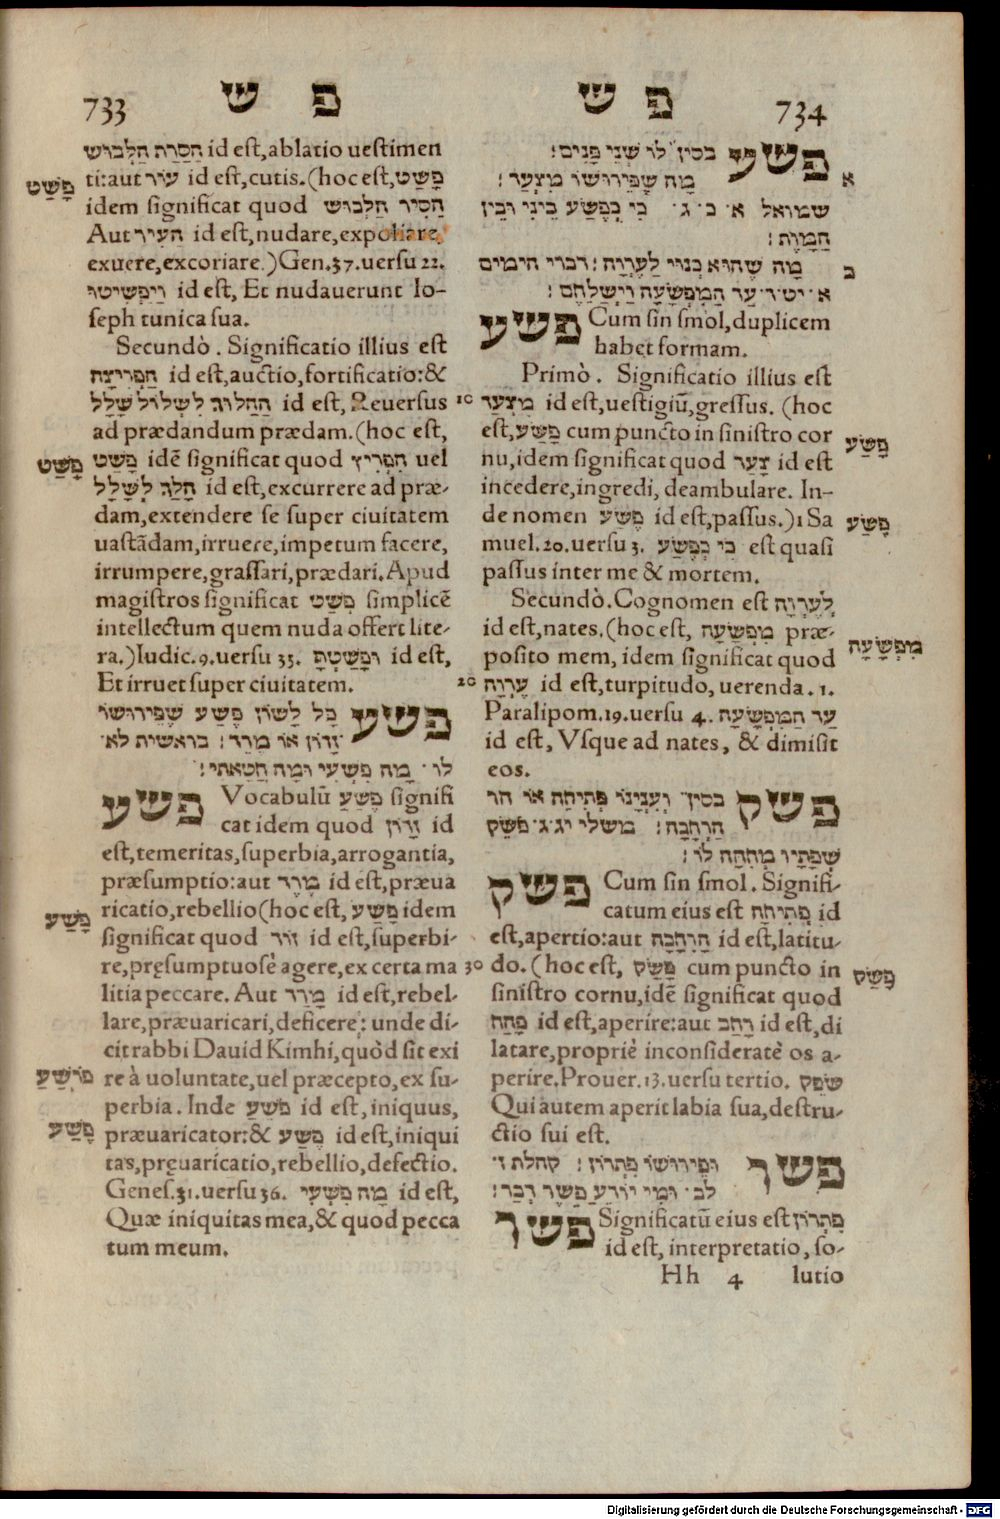 733 פ ש
הַסָרַת הַלְבוּש id est, ablatio uestimen
ti: aut עוֹר id est, cutis. (hoc est, פָּשַׁט
idem significat quod הֵסִיר הַלְבוּש
Aut הֵעִיר id est, nudare, expoliare,
exuere, excoriare.) Gen. 37. uersu 22.
וַיַפְשִׁיטוּ id est, Et nudauerunt Io-
seph tunica sua.
Secundò. Significatio illius est
הַפְרִיצָה id est, auctio, fortificatio: &
הַהִלוּךְ לִשְׁלוֹל שָׁלָל id est, Reuersus
ad prædandum prædam. (hoc est,
פָּשַׁט idē significat quod הִפְרִיץ uel
הָלַךְ לְשָׁלָל id est, excurrere ad præ-
dam, extendere se super ciuitatem
uastādam, irruere, impetum facere,
irrumpere, grassari, prædari. Apud
magistros significat פְּשַׁט simplicē
intellectum quem nuda offert lite-
ra.) Iudic. 9. uersu 33. וּפָשַׁטְתָּ id est,
Et irruet super ciuitatem.
פשע כָּל לָשׁוֹן פֶּשַׁע שֶׁפֵּירוּשׁוֹ
זָדוֹן אוֹ מֶרֶד: בראשית לא·
לו· מַה פִּשְׁעִי וּמַה חַטָאתִי:
פשע Vocabulū פֶּשַׁע signifi
cat idem quod זָדוֹן id
est, temeritas, superbia, arrogantia,
præsumptio: aut מֶרֶד id est, præua
ricatio, rebellio (hoc est, פָּשַׁע idem
significat quod זוּד id est, superbi-
re, pręsumptuosè agere, ex certa ma
litia peccare. Aut מָרַד id est, rebel-
lare, præuaricari, deficere: unde di-
cit rabbi Dauid Kimhi, quòd sit exi
re à uoluntate, uel præcepto, ex su-
perbia. Inde פֹּשֵׁעַ id est, iniquus,
præuaricator: & פֶּשַׁע id est, iniqui
tas, pręuaricatio, rebellio, defectio.
Genes. 31. uersu 36. מַה פִּשְׁעִי id est,
Quæ iniquitas mea, & quod pecca
tum meum.
פָּשַׁט
פָּשַׁט
פָּשַׁע
פּוֹשֵׁעַ
פֶּשַׁע
פ ש 734
פשע בסין לוֹ שְׁנֵי פָּנִים:
א מַה שֶׁפֵּירוּשׁוֹ מִצְעָד:
שמואל א· כ· ג· כִּי כְפֶשַׂע בֵּינִי וּבֵין
הַמָּוֶת:
ב מַה שֶׁהוּא כִנוּי לָעֶרְוָה: דברי הימים
א· יט· ד· עַד הַמִפְשָׂעָה וַיְשַׁלְּחֵם:
פשע Cum sin smol, duplicem
habet formam.
Primò. Significatio illius est
10 מִצְעָד id est, uestigiū, gressus. (hoc
est, פָּשַׂע cum puncto in sinistro cor
nu, idem significat quod צָעַד id est
incedere, ingredi, deambulare. In-
de nomen פֶּשַׂע id est, passus.) 1 Sa
muel. 20. uersu 3. כִּי כְפֶשַׂע est quasi
passus inter me & mortem.
Secundò. Cognomen est לָעֶרְוָה
id est, nates. (hoc est, מִפְשָׂעָה præ-
posito mem, idem significat quod
20 עֶרְוָה id est, turpitudo, uerenda. 1.
Paralipom. 19. uersu 4. עַד הַמִפְשָׂעָה
id est, Vsque ad nates, & dimisit
eos.
פשק בסין וְעִנְיָנוֹ פְּתִיחָה אוֹ הר
הַרְחָבָה: משלי יג· ג· פֹּשֵׂק
שְׂפָתָיו מְחִתָּה לוֹ:
פשק Cum sin smol. Signifi-
catum eius est פְּתִיחָה id
est, apertio: aut הַרְחָבָה id est, latitu-
30 do. (hoc est, פָּשַׂק cum puncto in
sinistro cornu, idē significat quod
פָּתַח id est, aperire: aut רָחַב id est, di
latare, propriè inconsideratè os a-
perire. Prouer. 13. uersu tertio. פֹּשֵׂק
Qui autem aperit labia sua, destru-
ctio sui est.
פשר וּפֵירוּשׁוֹ פִתְרוֹן: קהלת ז·
לב· וּמִי יוֹדֵעַ פֵּשֶׁר דָּבָר:
פשר Significatū eius est פִּתְרוֹן
id est, interpretatio, so-
Hh 4 lutio
פָּשַׂע
פֶּשַׂע
מִפְשָׂעָה
פָּשַׂק
Digitalisierung gefördert durch die Deutsche Forschungsgemeinschaft - DFG